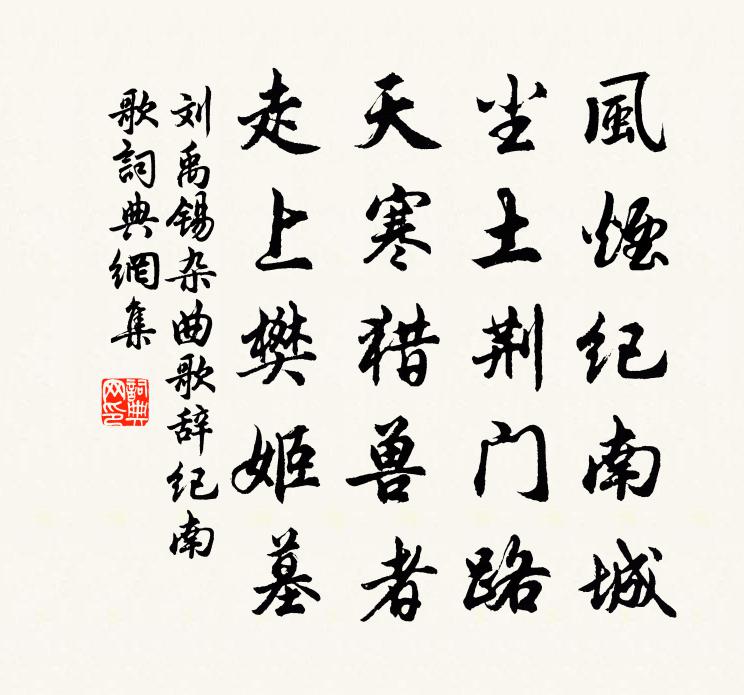 風煙紀南城
尘土荆门路
天寒猎兽者
走上樊姬墓
刘禹锡杂曲歌辞纪南
歌詞典網集
詞典网印